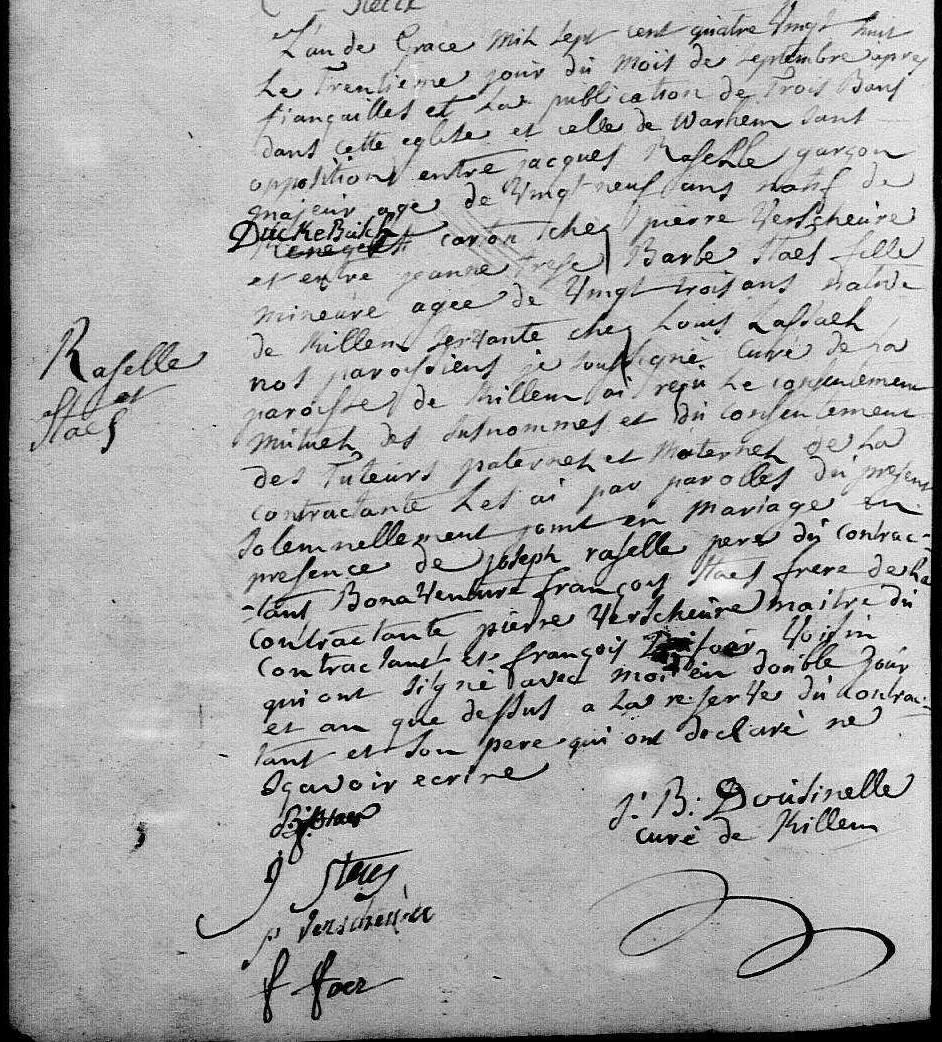 L'an de Grace Mil Sept cent quatre Vingt huit
Le Trentieme jour du Mois de Septembre apres
fiançailles et La publication de Trois Bans
dans cette eglise et celle de Warhem sans
opposition entre jacques Raselle garçon
majeur age de Vingt neuf ans natif de
Duckebusch carton chez pierre Verscheure
et entre jeanne Barbe Staes fille
mineure agee de Vingt trois ans native
de Killem servante chez Louis
nos paroissiens je soussigné Curé de La
paroisse de Killem ai reçu Le consentement
mutuel des susnommes et du consentement
des Tuteurs paternel et Maternel de La
contractante Les ai par parolles du present
Solemnellement joint en Mariage en
presence de joseph raselle pere du contrac-
-tant Bonaventure françois Staes frere de La
contractante pierre Verscheure maitre du
contractant et françois foér Voisin
qui ont signé avec moi en double jour
et an que dessus a La reserve du contrac-
tant et son pere qui ont declaré ne
Sçavoir ecrire
Raselle
et
Staes
J. B. Dousinelle
curé de Killem
J Staes
p Verscheure
f foer